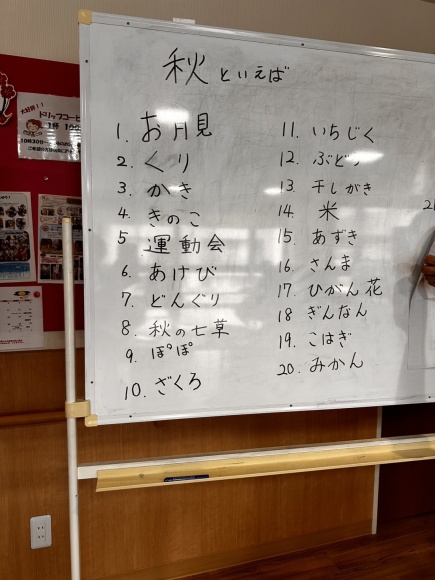 秋といえば
1. お月見
2. くり
3. かき
4. きのこ
5 運動会
6. あけび
7. どんぐり
8. 秋の七草
9. ぽぽ
10. ざくろ
11. いちじく
12. ぶどう
13. 干しがき
14. 米
15. あずき
16. さんま
17. ひがん花
18 ぎんなん
19. こはぎ
20. みかん
大好評!!
ドリップコーヒー
1杯 100